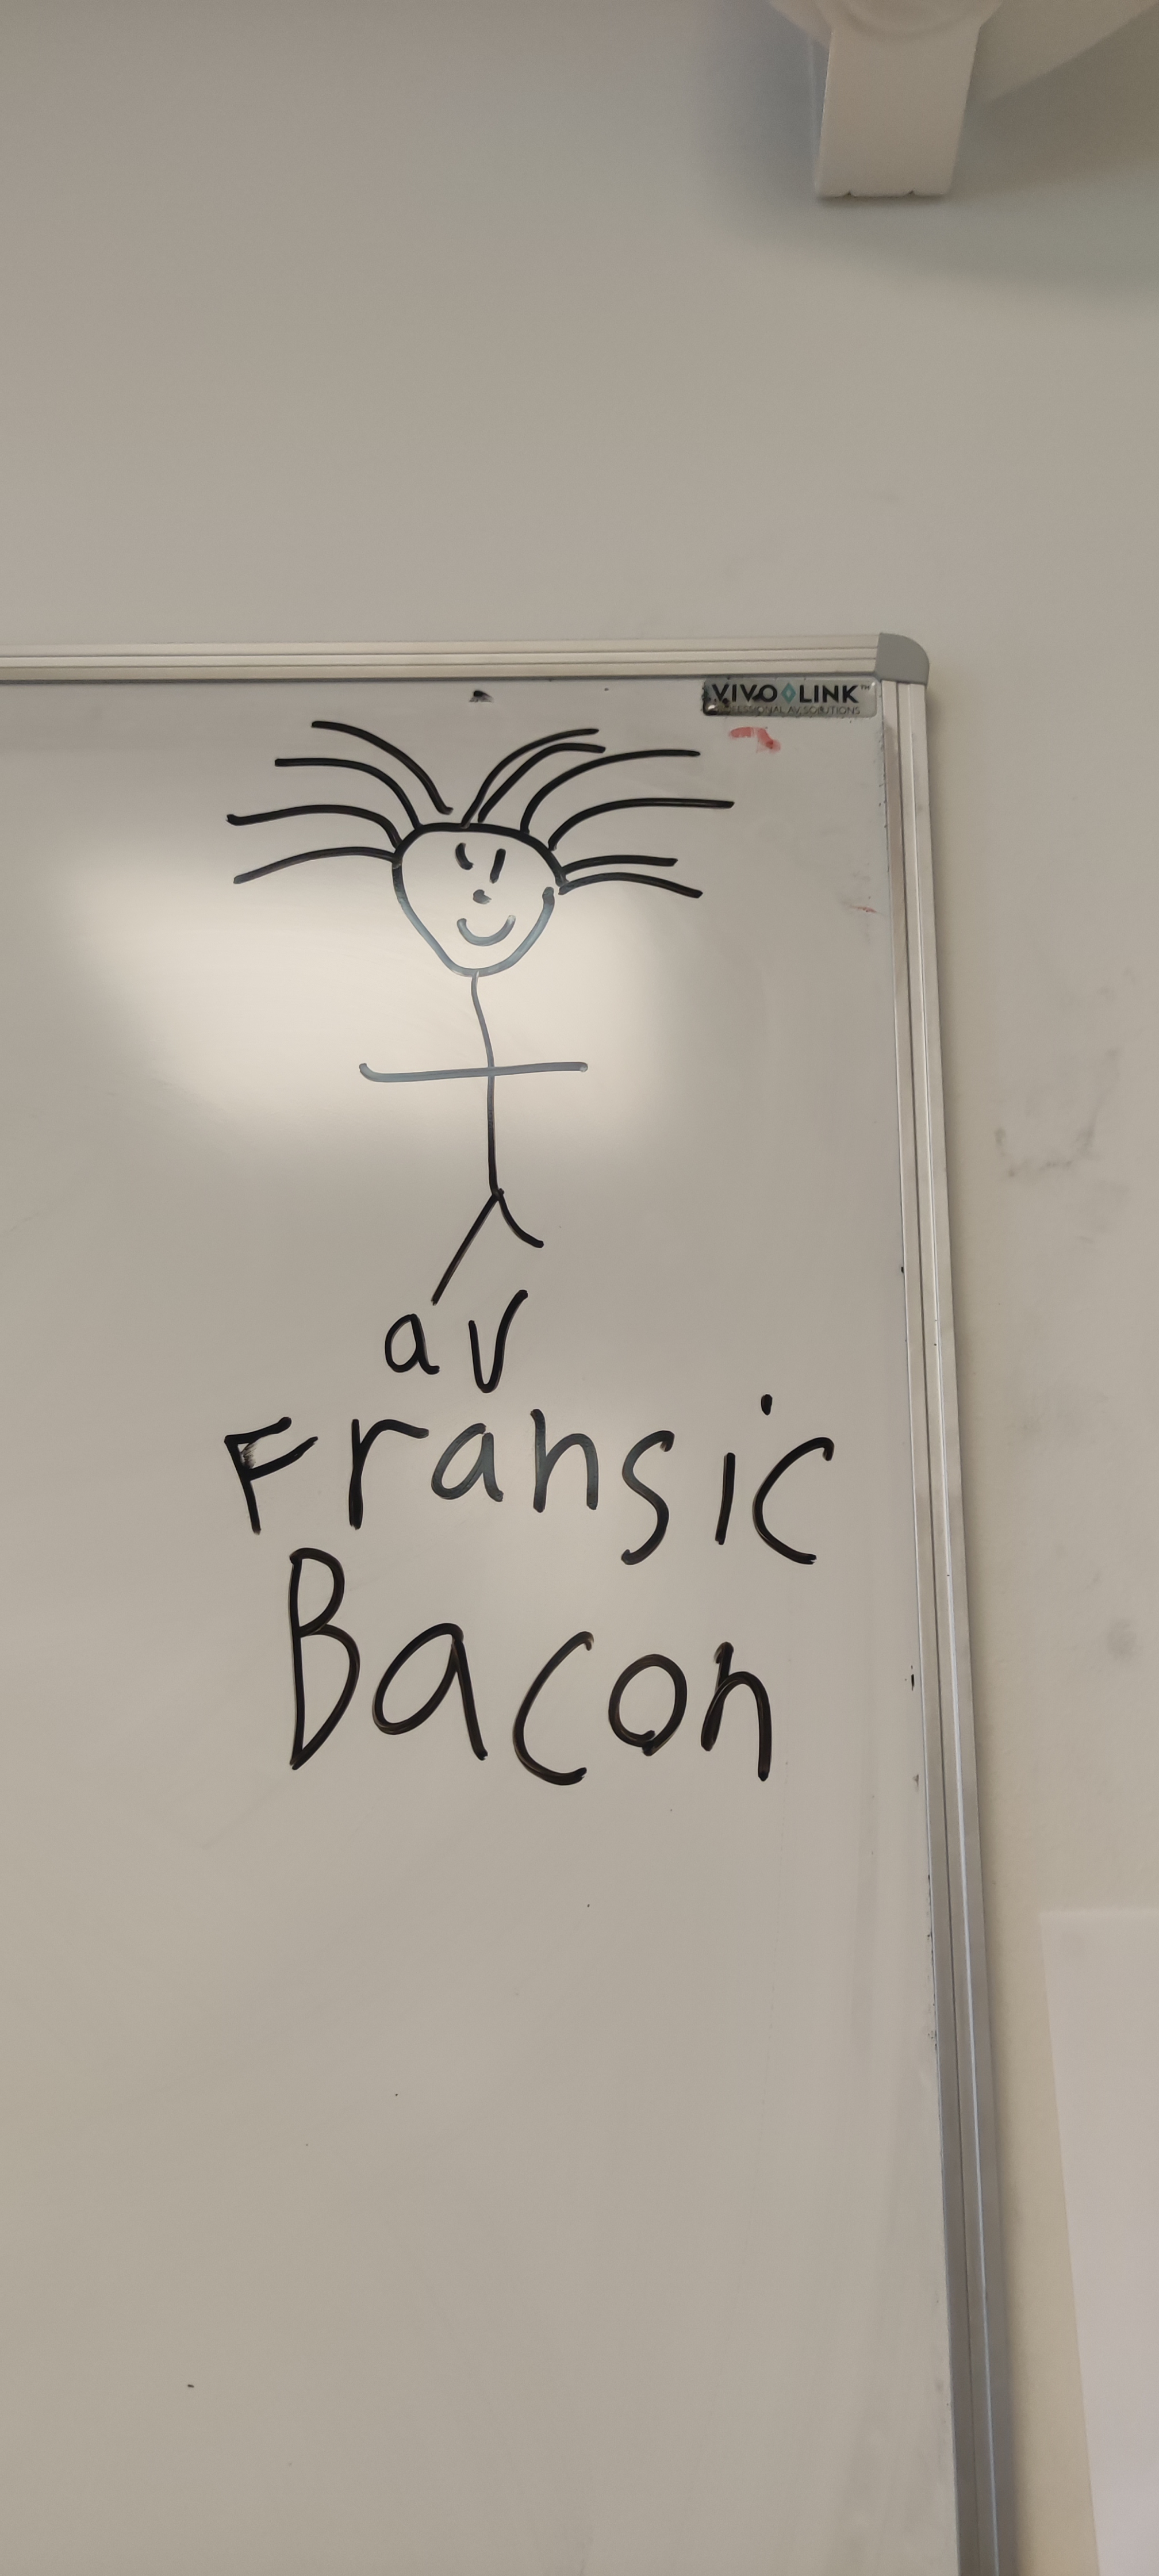 VIVO LINK™
PROFESSIONAL AV SOLUTIONS
av
Fransic
Bacon